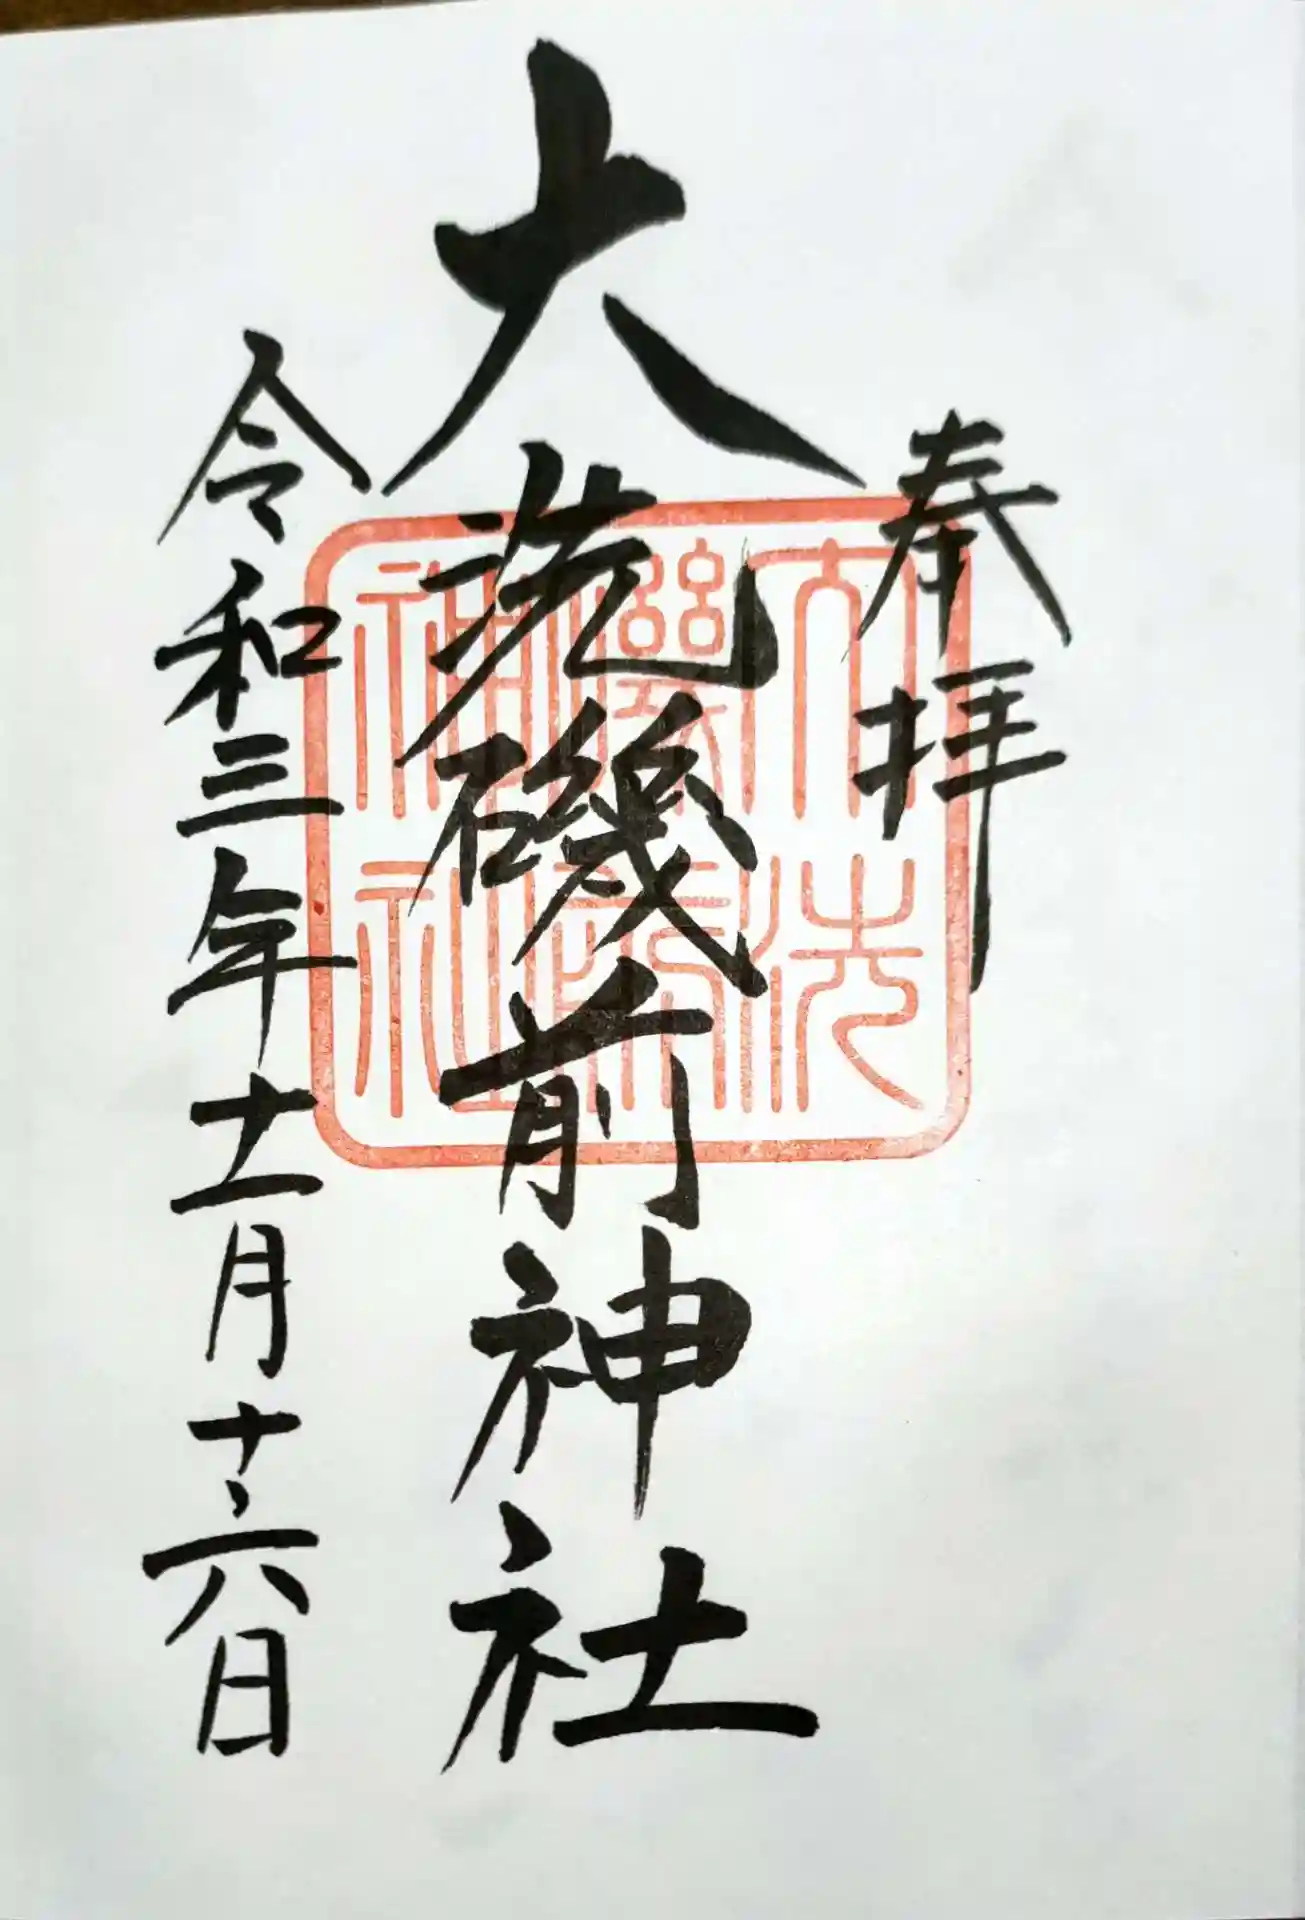 奉拝
大洗磯前神社
令和三年十一月十六日
大洗
磯前
神社